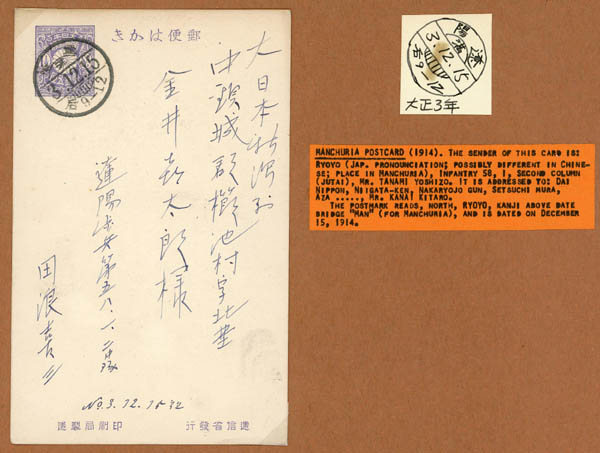 郵便はかき
3.12.15
后9-12
大日本新潟县
中頸城郡櫛池村字北
金井喜太郎様
遼陽歩兵第五八、一、二
田浪喜
遞信省發行
印刷局製造
遼陽
3.12.15
后9-12
大正3年
MANCHURIA POSTCARD (1914). THE SENDER OF THIS CARD IS:
RYOYO (JAP. PRONOUNCIATION; POSSIBLY DIFFERENT IN CHINE-
SE; PLACE IN MANCHURIA), INFANTRY 58, I, SECOND COLUMN
(JUTAI), MR. TANAMI YOSHIZO. IT IS ADDRESSED TO: DAI
NIPPON, NIIGATA-KEN, NAKARYOJO GUN, SETSUCHI MURA,
AZA ....., MR. KANAI KITARO.
THE POSTMARK READS, NORTH, RYOYO, KANJI ABOVE DATE
BRIDGE "MAN" (FOR MANCHURIA), AND IS DATED ON DECEMBER
15, 1914.